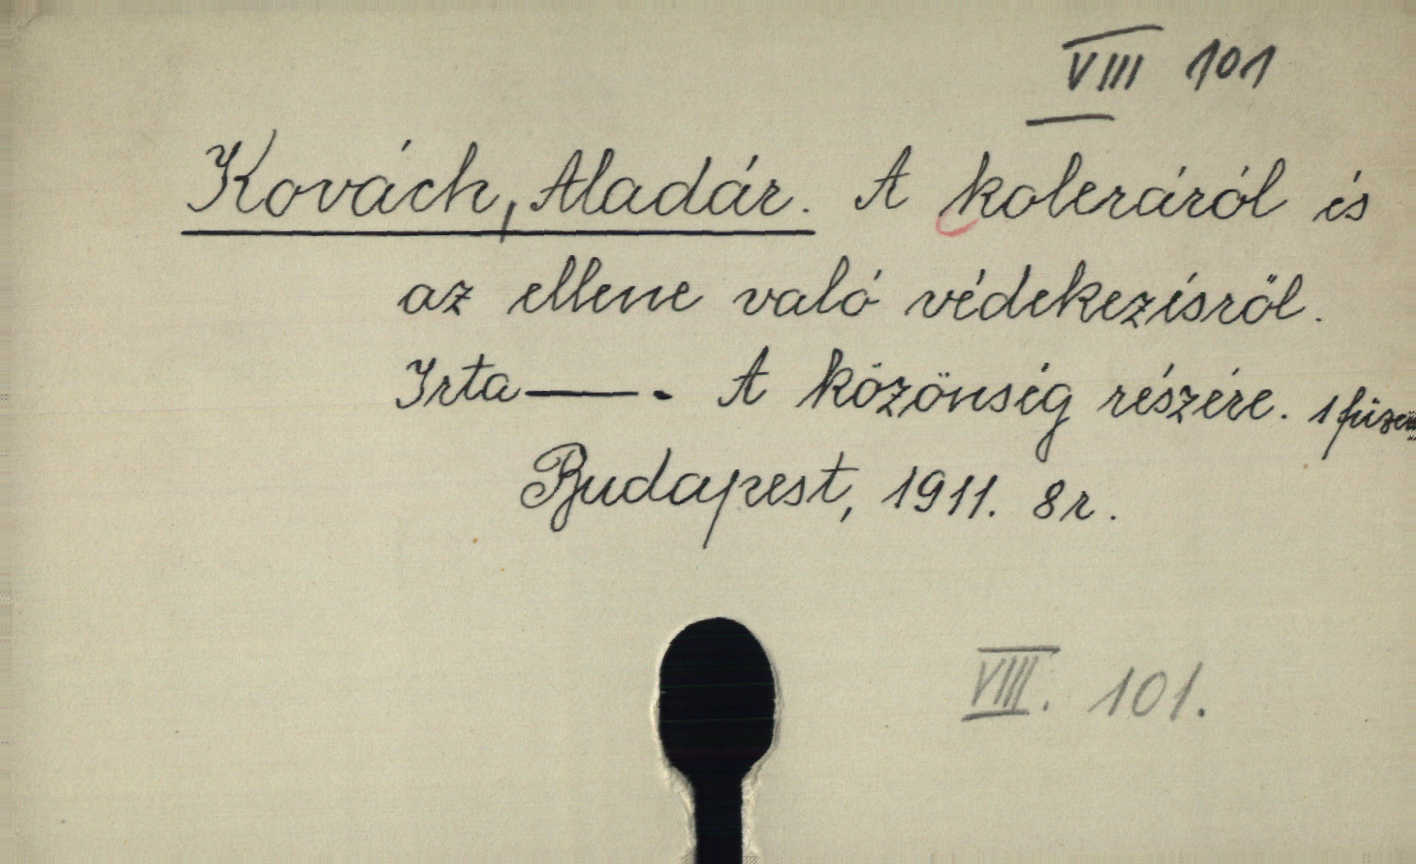 VIII 101
Kovách, Aladár. A koleráról és
az ellene való védekezésről.
Irta —. A közönség részére. 1 füzet
Budapest, 1911. 8r.
VIII. 101.